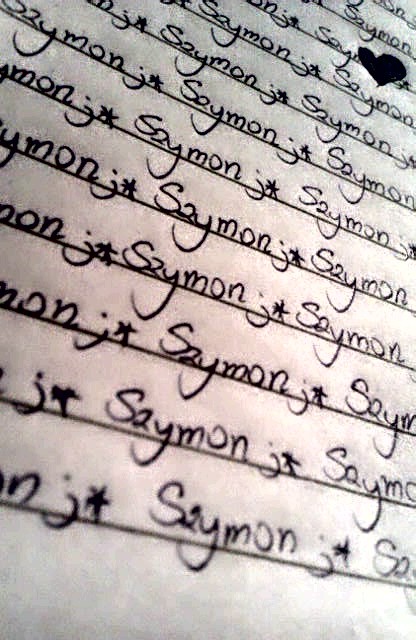 Szymon
Szymon j* Szy
j* Szymon j* Szymon
j* Szymon j* Szymon j*
Szymon j* Szymon j* Szymon
ymon j* Szymon j* Szymon j*
zymon j* Szymon j* Szymon
mon j* Szymon j* Szymon
mon j* Szymon j* Szym
j* Szymon j* Szymo
on j* Szymon j* Sz